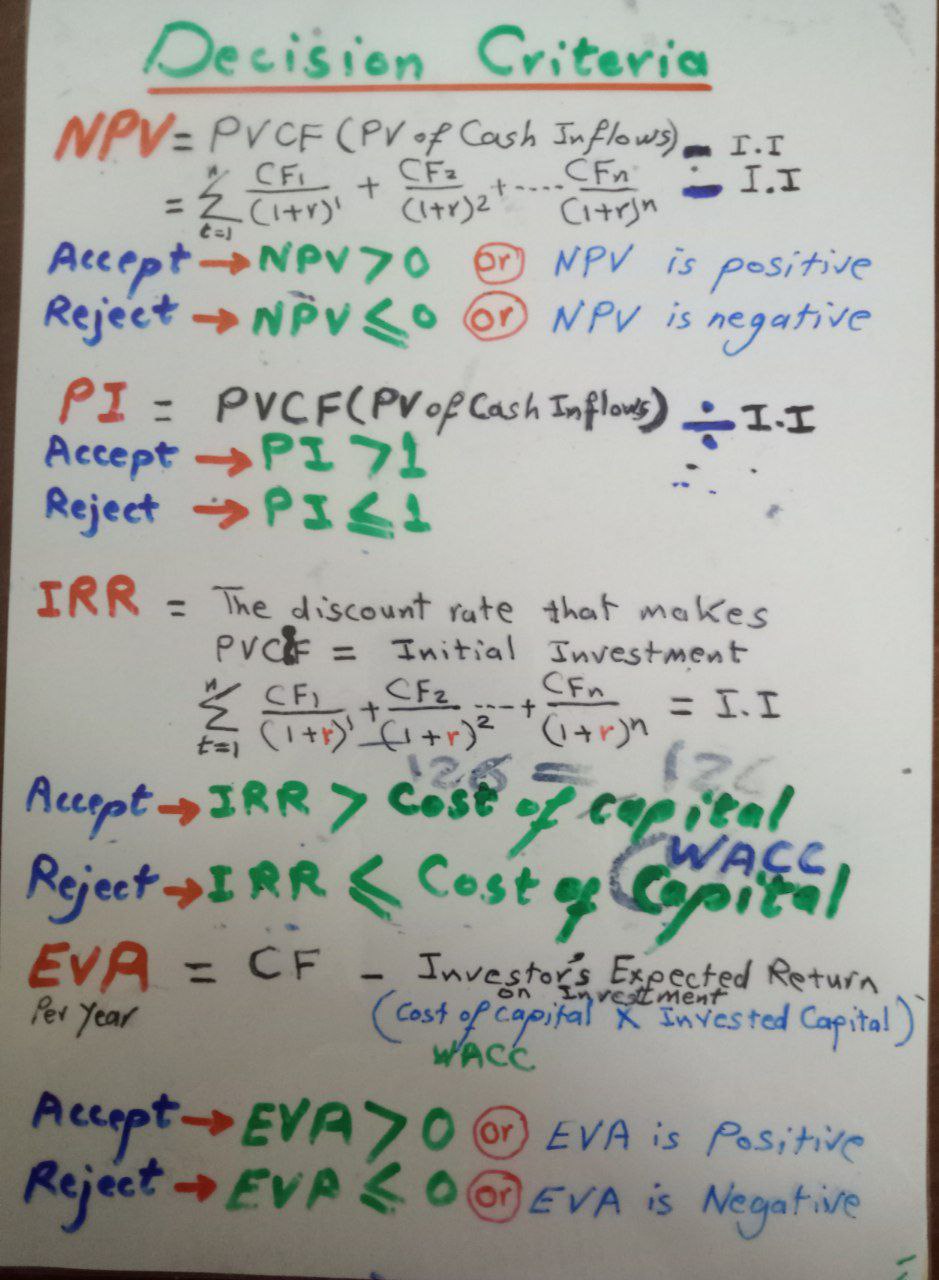 Decision Criteria
NPV = PVCF (PV of Cash Inflows) - I.I
= n∑t=1 CF1/(1+r)^1 + CF2/(1+r)^2 + ..... CFn/(1+r)^n - I.I
Accept → NPV > 0 or NPV is positive
Reject → NPV ≤ 0 or NPV is negative
PI = PVCF (PV of Cash Inflows) ÷ I.I
Accept → PI > 1
Reject → PI ≤ 1
IRR = The discount rate that makes
PVCF = Initial Investment
n∑t=1 CF1/(1+r)^1 + CF2/(1+r)^2 ---+ CFn/(1+r)^n = I.I
Accept → IRR > Cost of capital
WACC
Reject → IRR ≤ Cost of Capital
EVA = CF - Investor's Expected Return
on Investment
Per Year (Cost of Capital X Invested Capital)
WACC
Accept → EVA > 0 or EVA is Positive
Reject → EVA ≤ 0 or EVA is Negative